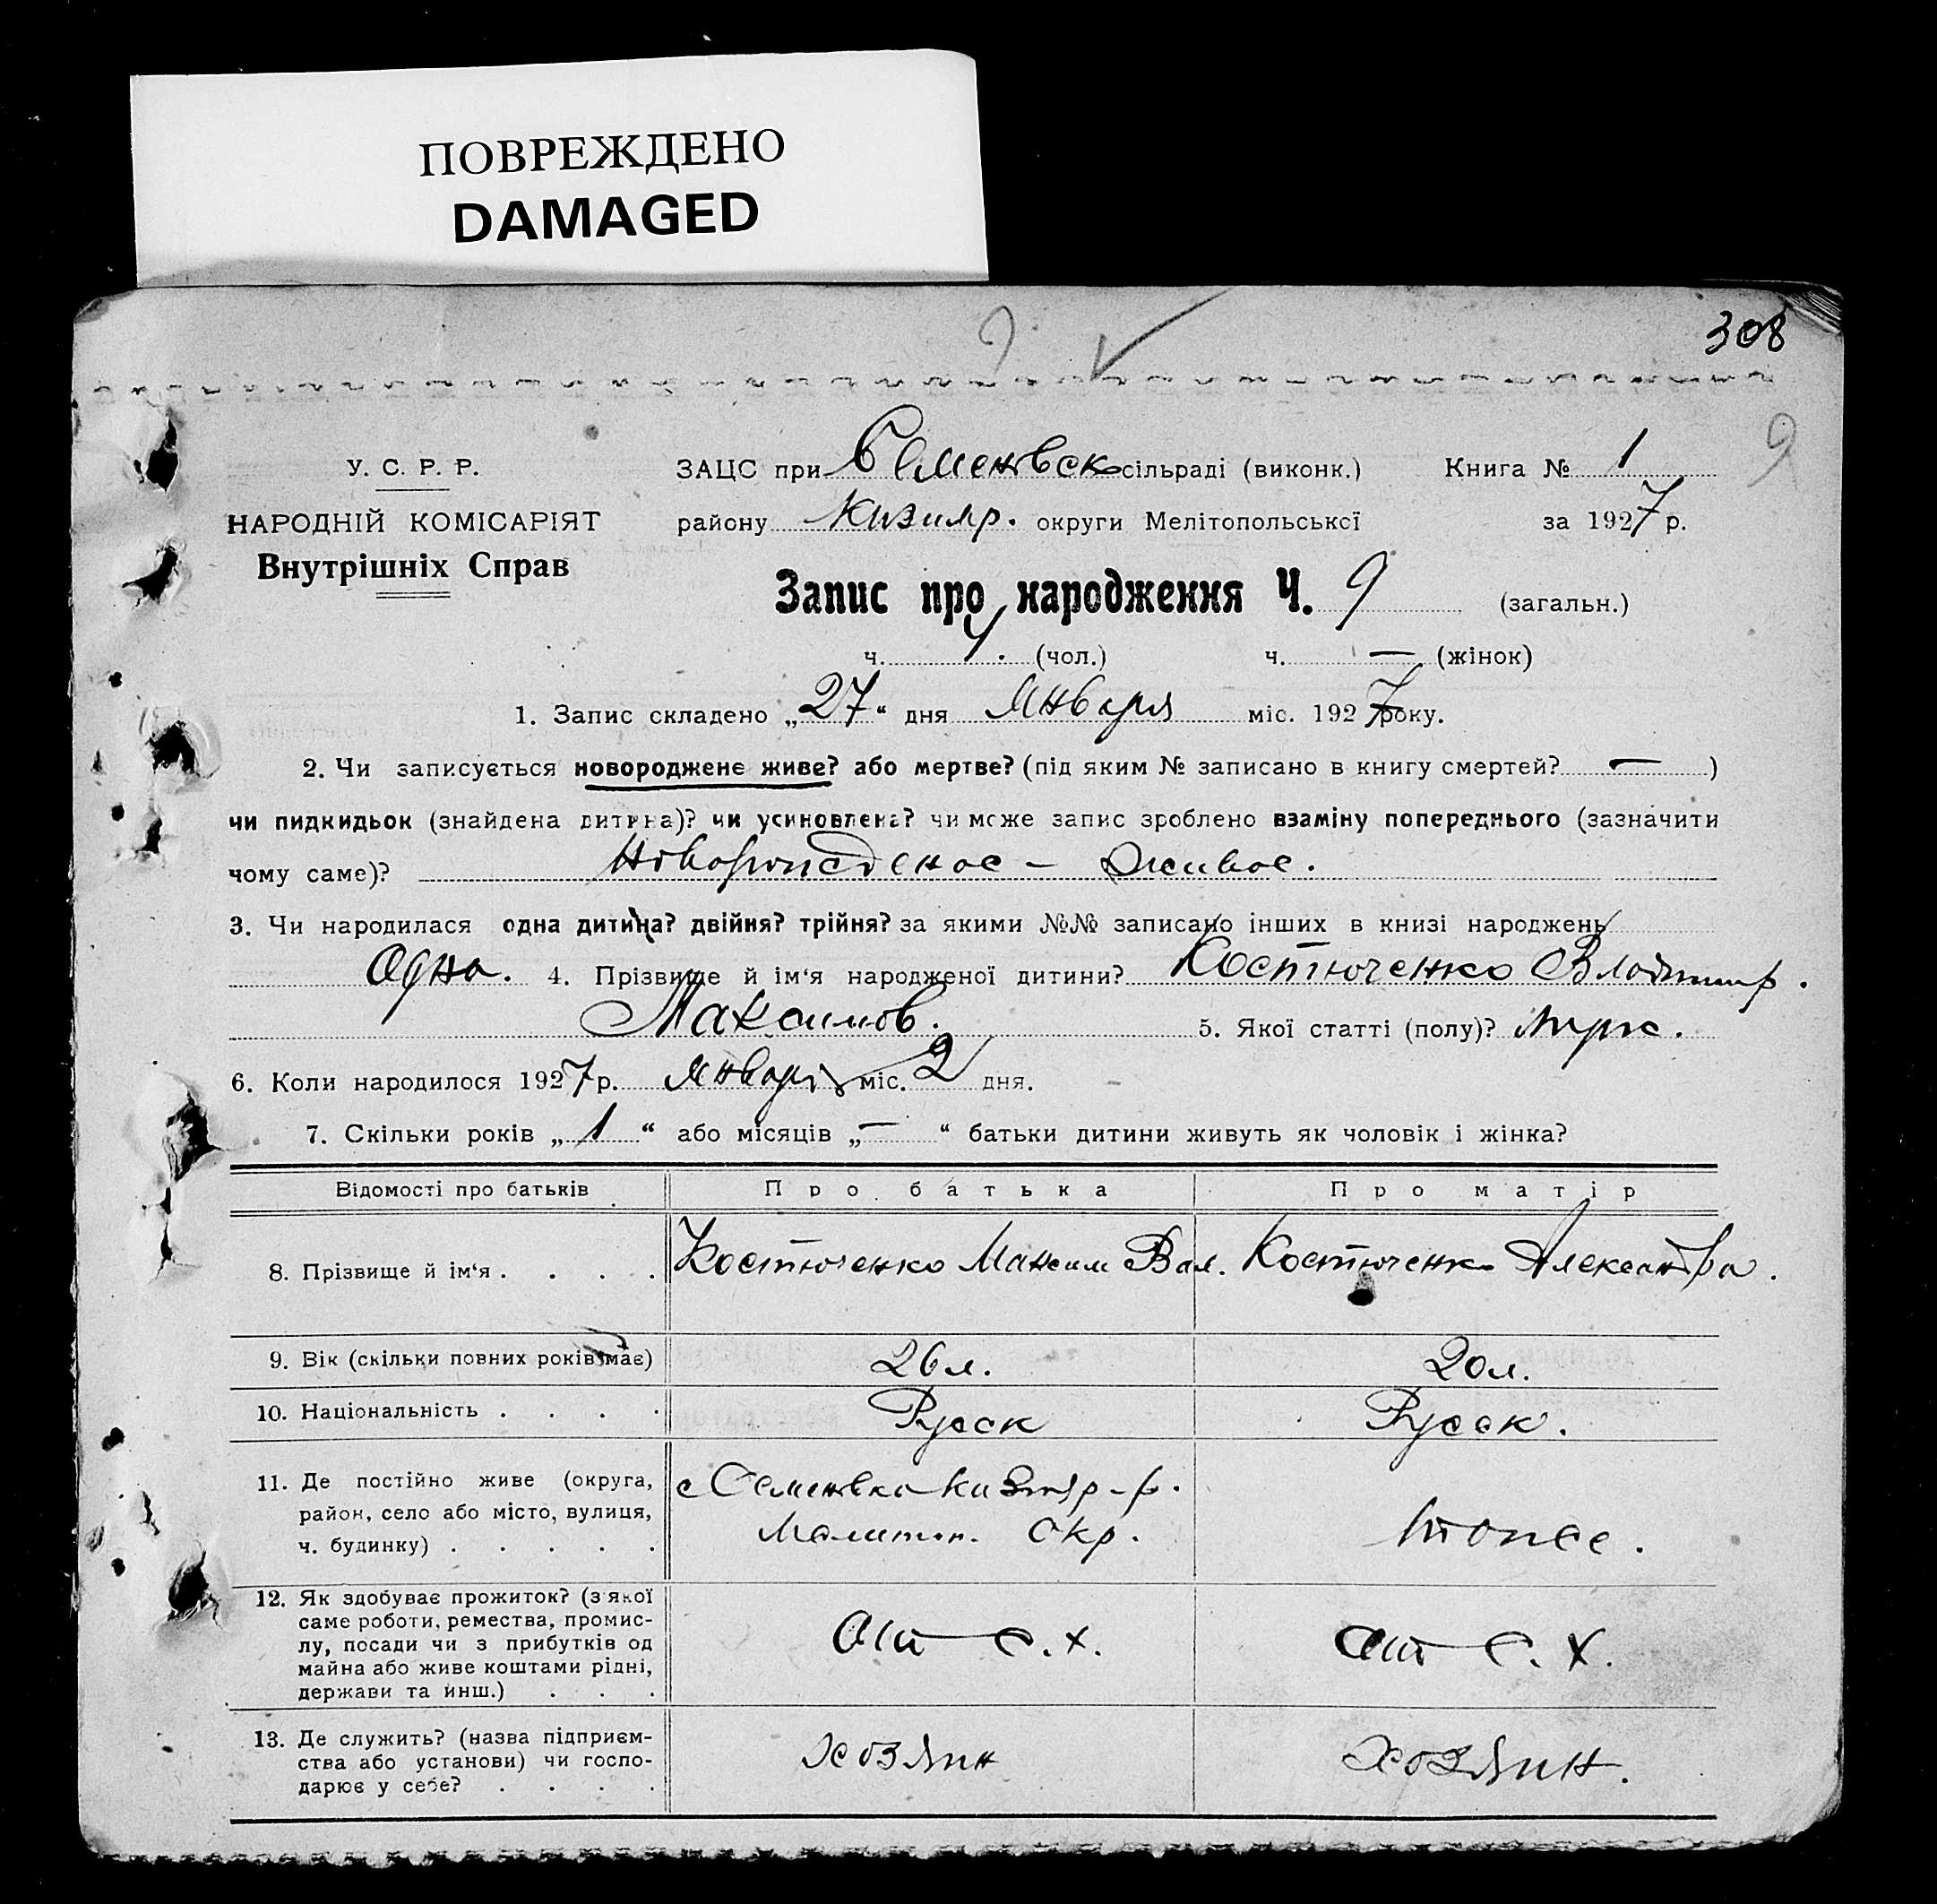 ПОВРЕЖДЕНО
DAMAGED
308
9
У. С. Р. Р.
ЗАЦС при Семенвск сільраді (виконк.) Книга № 1
9
НАРОДНІЙ КОМІСАРІЯТ
району Кизияр. округи Мелітопольської за 1927 р.
Внутрішніх Справ
Запис про народження Ч. 9 (загальн.)
ч. (чол.) ч. — (жінок)
1. Запис складено „27“ дня Января міс. 1927 року.
2. Чи записується новороджене живе? або мертве? (під яким № записано в книгу смертей? — )
чи пидкидьок (знайдена дитина)? чи усиновлена? чи може запис зроблено взаміну попереднього (зазначити
чому саме)? Новорожденое – живое.
3. Чи народилася одна дитина? двійня? трійня? за якими №№ записано інших в книзі народжень
Одна. 4. Прізвище й ім‘я народженої дитини? Костюченко Владимир.
Максимов. 5. Якої статті (полу)? муж.
6. Коли народилося 1927 р. Января міс. 2 дня.
7. Скільки років „1“ або місяців „—“ батьки дитини живуть як чоловік і жінка?
Відомості про батьків Про батька Про матір
8. Прізвище й ім‘я . . . . Костюченко Максим Вас. Костюченко Александра.
9. Вік (скільки повних років має) 26 л. 20 л.
10. Національність . . . . Русск Русск.
11. Де постійно живе (округа,
район, село або місто, вулиця,
ч. будинку) . . . . .
с Семенвка Кизияр. р.
Мелитоп. Окр.
тоже.
12. Як здобуває прожиток? (з якої
саме роботи, ремества, промис-
лу, посади чи з прибутків од
майна або живе коштами рідні,
держави та инш.) . . .
От с. х.
от с. х.
13. Де служить? (назва підприєм-
ства або установи) чи госпо-
дарює у себе? . . . .
хозяин
хозяин.